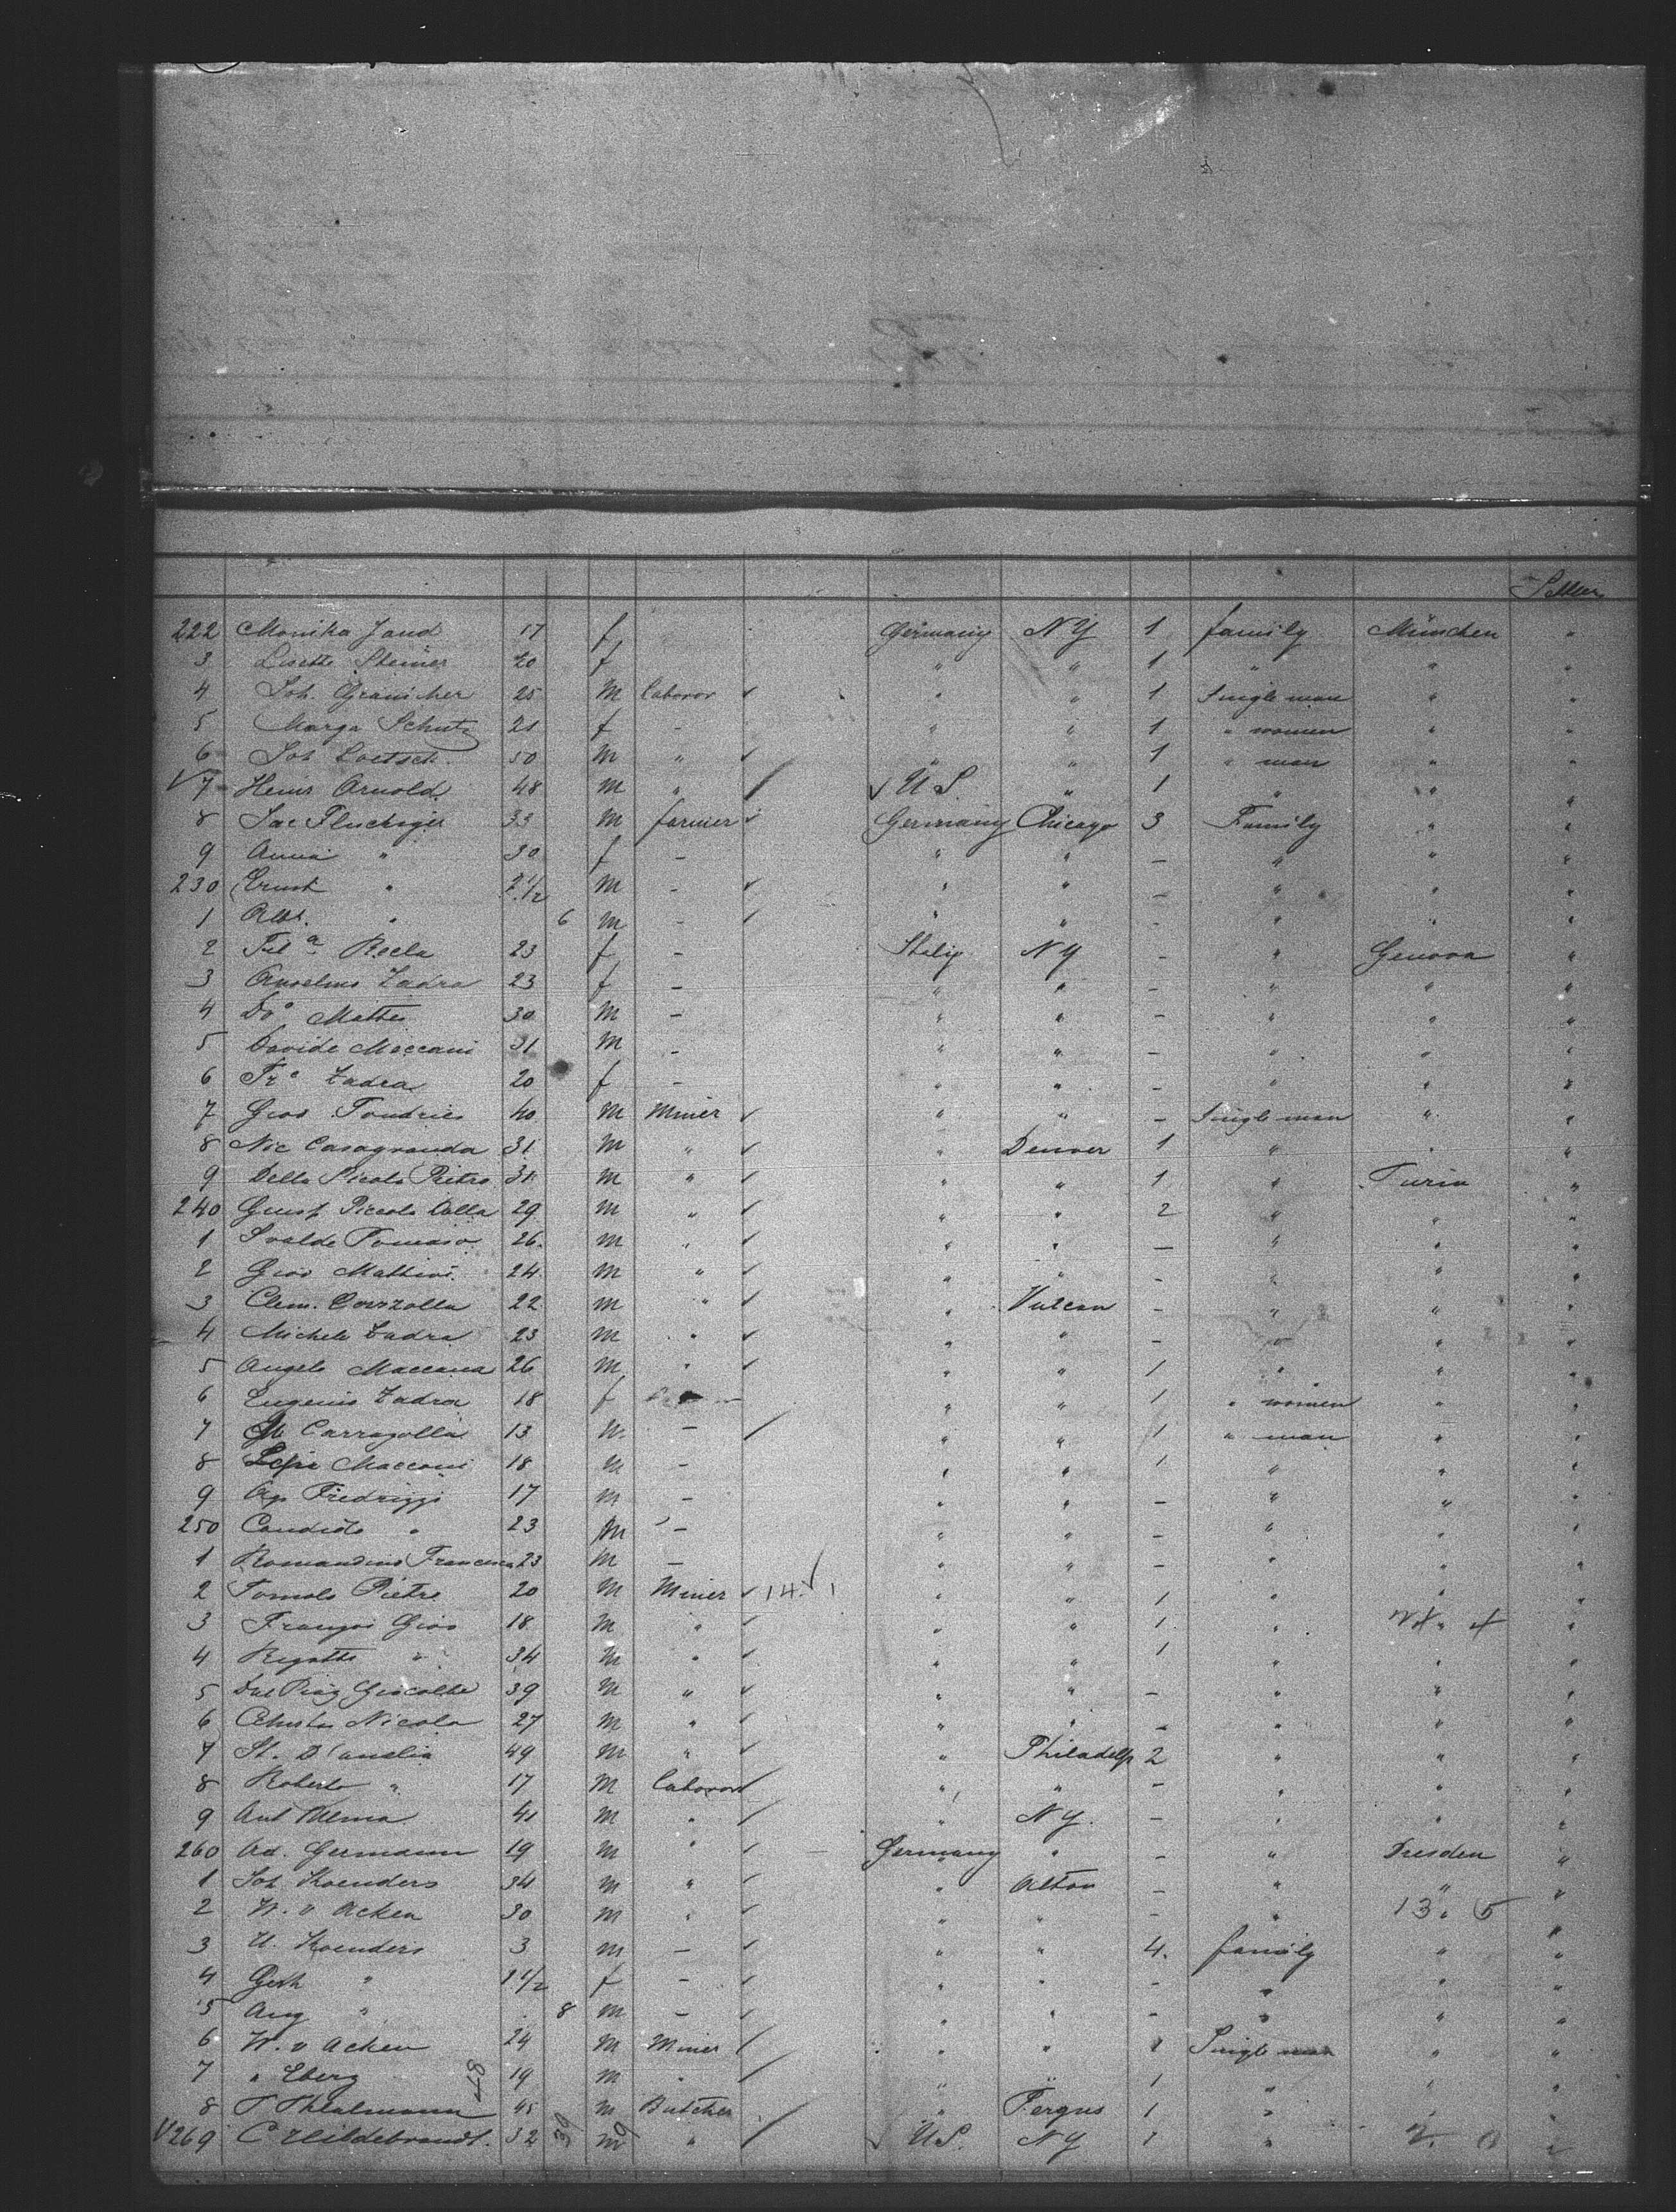 Settler
222 Monika Jand 17 f Germany NY 1 family München "
3 Lisette Steiner 20 f " " 1 " " "
4 Joh. Gränicher 25 M Laboror ✓ " " 1 Single man " "
5 Marga Schutz 21 f - " " 1 " women " "
6 Joh Loetsch 50 M " ✓ " " 1 " man " "
✓ 7 Heinr Arnold 48 M " / ✓ U S. " 1 " " "
8 Jac Fluckiger 33 M farmer ✓ Germany Chicago 3 Family " "
9 Anna " 30 f - " " - " " "
230 Ernst " 2 1/2 M - ✓ " " - " " "
1 Albt. " 6 M - ✓ " " - " " "
2 Recla 23 f - NY - " Genova "
3 Anselmo Zadra 23 f - " " - " " "
4 Do Matteo 30 M - " " - " " "
5 Davide Maccani 31 M - " " - " " "
6 Zadra 20 f - " " - " " "
7 Giov. 40 M Miner ✓ " " - Single man " "
8 Nic Casagranda 31 M " ✓ " Denver 1 " " "
9 Della Picola Pietro 31 M " ✓ " " 1 " Turin "
240 Giust Piccola Dalla 29 M " ✓ " " 2 " " "
1 Tomaso 26. M " ✓ " " - " " "
2 Giov Mattivi 24 M " ✓ " " - " " "
3 Clem. 22 M " ✓ " Vulcan - " " "
4 Michele Zadra 23 M " ✓ " " - " " "
5 Angelo Maccana 26 M " ✓ " " 1 " " "
6 Eugenio Zadra 18 f " " 1 " women " "
7 Carragolla 13 M. - / " " 1 " man " "
8 Macconi 18 M - " " 1 " " "
9 Fredrizzi 17 M - " " - " " "
250 Candido " 23 M - " " - " " "
1 Romandini Francesca 23 M - " " - " " "
2 Tomolo Pietro 20 M Miner ✓ 14. " " 1 " " "
3 Giov 18 M " ✓ " " 1 " "
4 Rigotti " 34 M " ✓ " " 1 " " "
5 39 M " ✓ " " - " " "
6 Nicola 27 M " ✓ " " - " " "
7 St. 49 M " ✓ " Philadelp 2 " " "
8 Roberto " 17 M Laboror / " " - " " "
9 Ant 41 M " / " NY. - " " "
260 Ad. Germann 19 M " ✓ Germany " - " Dresden "
1 Joh Koenders 34 M " ✓ " Alton - " " "
2 W. v Acken 30 M " ✓ " " - " 13. 5 "
3 H. Koenders 3 M - ✓ " " 4. family " "
4 Gerh " 1 1/2 f - ✓ " " - " " "
5 Aug " 8 M - ✓ " " - " " "
6 W. v Acken 24 M Miner / " " 1 Single man " "
7 " Eberg 19 M " / " " 1 " " "
8 T Thealmann 45 M Butcher " Fergus 1 " " "
✓ 269 C Heildebrandt. 32 M " / ✓ U S. NY 1 " "
48
39
9